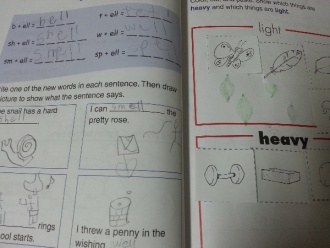 b + ell = bell
t + ell =
sh + ell = shell
w + ell = well
sm + ell = smell
sp + ell = spell
rite one of the new words in each sentence. Then draw
picture to show what the sentence says.
he snail has a hard
shell
I can smell the
pretty rose.
rings
ool starts.
I threw a penny in the
wishing well
heavy and which things are light.
light
heavy